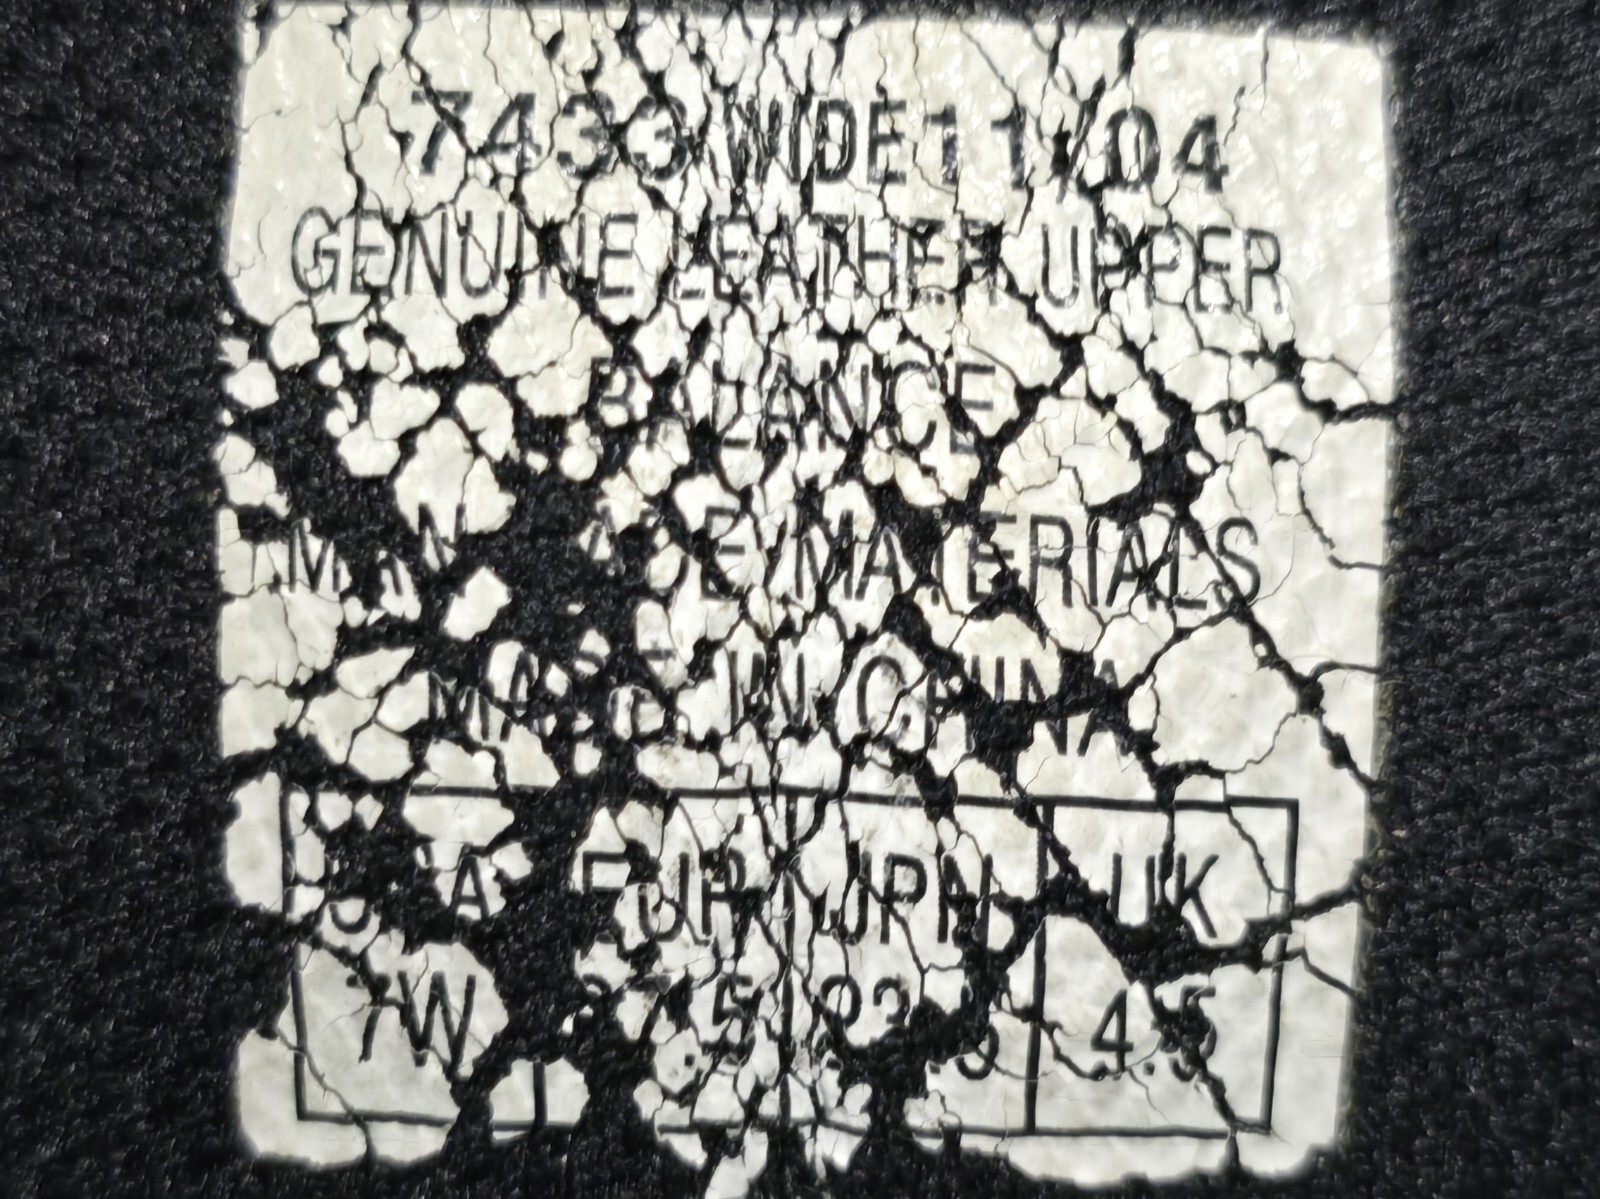 7433 WIDE 11/04
GENUINE LEATHER UPPER
BALANCE
MAN MADE MATERIALS
MADE IN CHINA
USA EUR JPN UK
7W 4.5